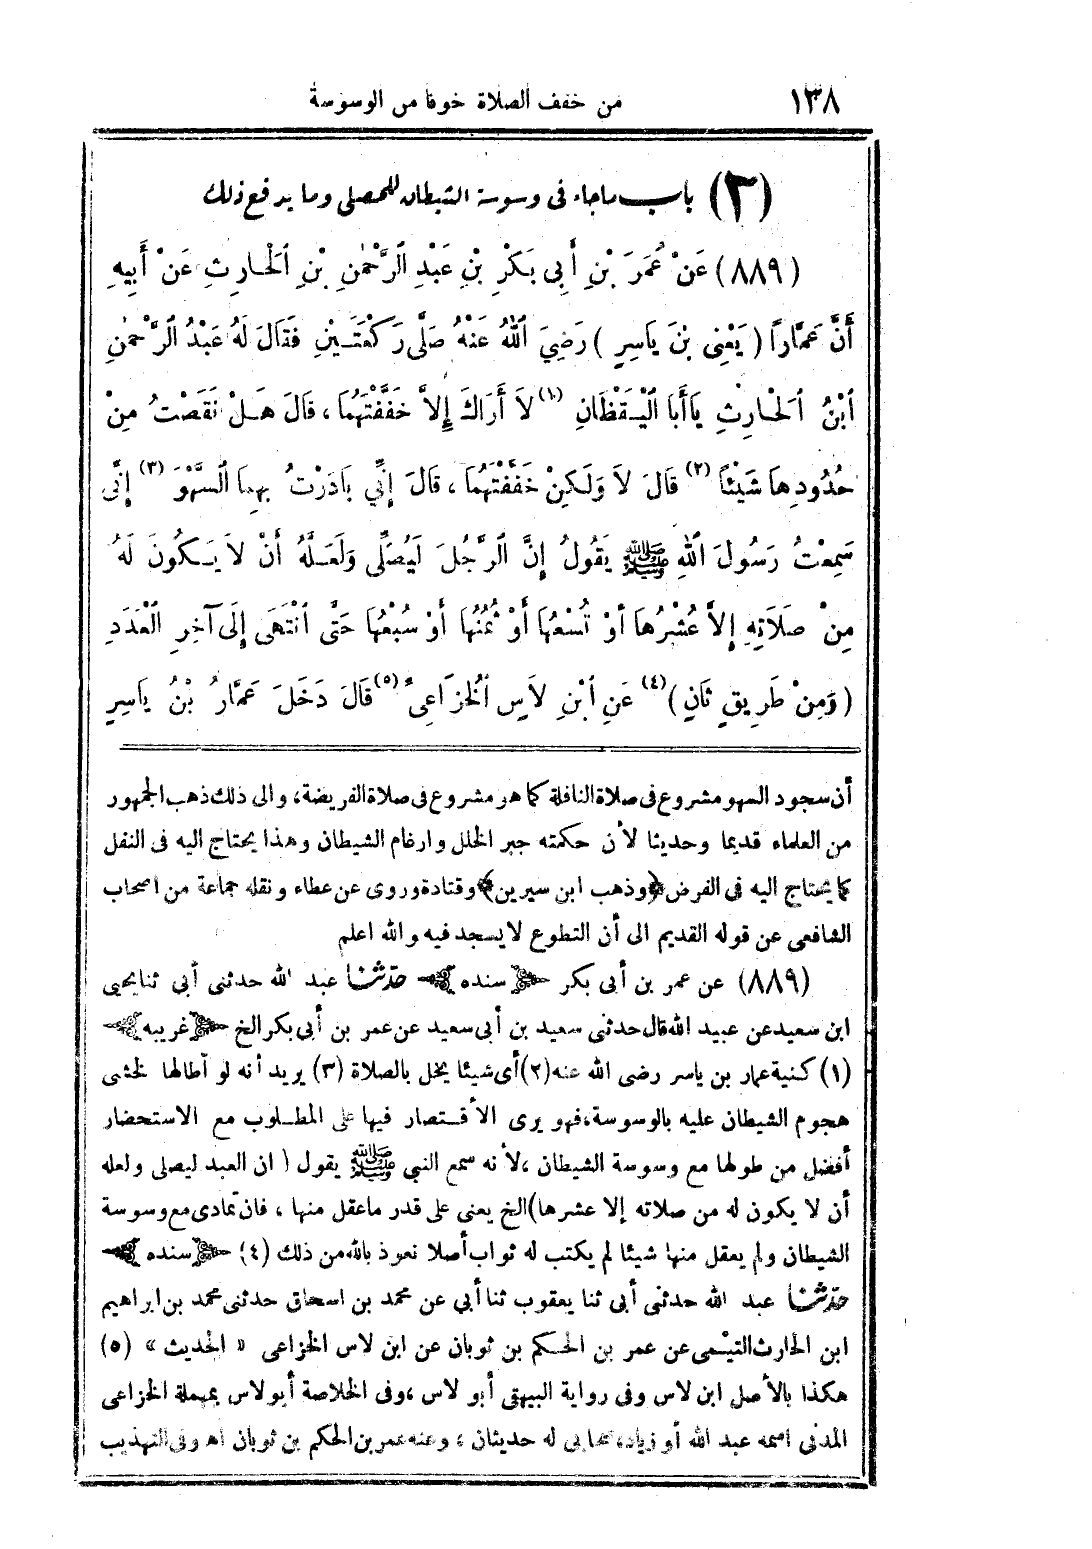 ١٣٨ من خفف الصلاة خوفا من الوسوسة
(٣) باب ماجاء فى وسوسة الشيطان للمصلى وما يدفع ذلك
(٨٨٩) عَنْ عُمَرَ بْنِ أَبِى بَكْرِ بْنِ عَبْدِ الرَّحْمٰنِ بْنِ الْحَارِثِ عَنْ أَبِيهِ
أَنَّ عَمَّارًا (يَعْنِى بْنَ يَاسِرٍ) رَضِيَ اللهُ عَنْهُ صَلَّى رَكْعَتَيْنِ فَقَالَ لَهُ عَبْدُ الرَّحْمٰنِ
ابْنُ الْحَارِثِ يَا أَبَا الْيَقْظَانِ (١) لاَ أَرَاكَ إِلاَّ خَفَّفْتَهُمَا، قَالَ هَلْ نَقَصْتُ مِنْ
حُدُودِهَا شَيْئًا (٢) قَالَ لاَ وَلَكِنْ خَفَّفْتَهُمَا، قَالَ إِنِّي بَادَرْتُ بِهِمَا السَّهْوَ (٣) إِنِّى
سَمِعْتُ رَسُولَ اللهِ ﷺ يَقُولُ إِنَّ الرَّجُلَ لَيُصَلِّى وَلَعَلَّهُ أَنْ لاَ يَكُونَ لَهُ
مِنْ صَلَاتِهِ إِلاَّ عُشْرُهَا أَوْ تُسْعُهَا أَوْ ثُمُنُهَا أَوْ سُبْعُهَا حَتَّى انْتَهَى إِلَى آخِرِ الْعَدَدِ
(وَمِنْ طَرِيقٍ ثَانٍ) (٤) عَنِ ابْنِ لاَسٍ الْخُزَاعِىِّ (٥) قَالَ دَخَلَ عَمَّارُ بْنُ يَاسِرٍ
أن سجود السهو مشروع فى صلاة النافلة كما هو مشروع فى صلاة الفريضة، والى ذلك ذهب الجمهور
من العلماء قديما وحديثا لأن حكمته جبر الخلل وارغام الشيطان وهذا يحتاج اليه فى النفل
كما يحتاج اليه فى الفرض ﴿وذهب ابن سيرين﴾ وقتادة وروى عن عطاء ونقله جماعة من اصحاب
الشافعى عن قوله القديم الى أن التطوع لا يسجد فيه والله اعلم
(٨٨٩) عن عمر بن أبى بكر ﴿سنده﴾ حدّثنا عبد الله حدثنى أبى ثنا يحيى
ابن سعيد عن عبيد الله قال حدثنى سعيد بن أبى سعيد عن عمر بن أبى بكر الخ ﴿غريبه﴾
(١) كنية عمار بن ياسر رضى الله عنه (٢) أى شيئا يخل بالصلاة (٣) يريد أنه لو أطالها لخشى
هجوم الشيطان عليه بالوسوسة، فهو يرى الأقتصار فيها على المطلوب مع الاستحضار
أفضل من طولها مع وسوسة الشيطان، لأنه سمع النبى ﷺ يقول (ان العبد ليصلى ولعله
أن لا يكون له من صلاته إلا عشرها) الخ يعنى على قدر ماعقل منها، فان تمادى مع وسوسة
الشيطان ولم يعقل منها شيئا لم يكتب له ثواب أصلا نعوذ بالله من ذلك (٤) ﴿سنده﴾
حدّثنا عبد الله حدثنى أبى ثنا يعقوب ثنا أبي عن محمد بن اسحاق حدثنى محمد بن ابراهيم
ابن الحارث التيمى عن عمر بن الحكم بن ثوبان عن ابن لاس الخزاعى « الحديث » (٥)
هكذا بالأصل ابن لاس وفى رواية البيهقى أبو لاس، وفى الخلاصة أبو لاس بمهملة الخزاعى
المدنى اسمه عبد الله أو زياد، صحابى له حديثان، وعنه عمر بن الحكم بن ثوبان اهـ وفى التهذيب